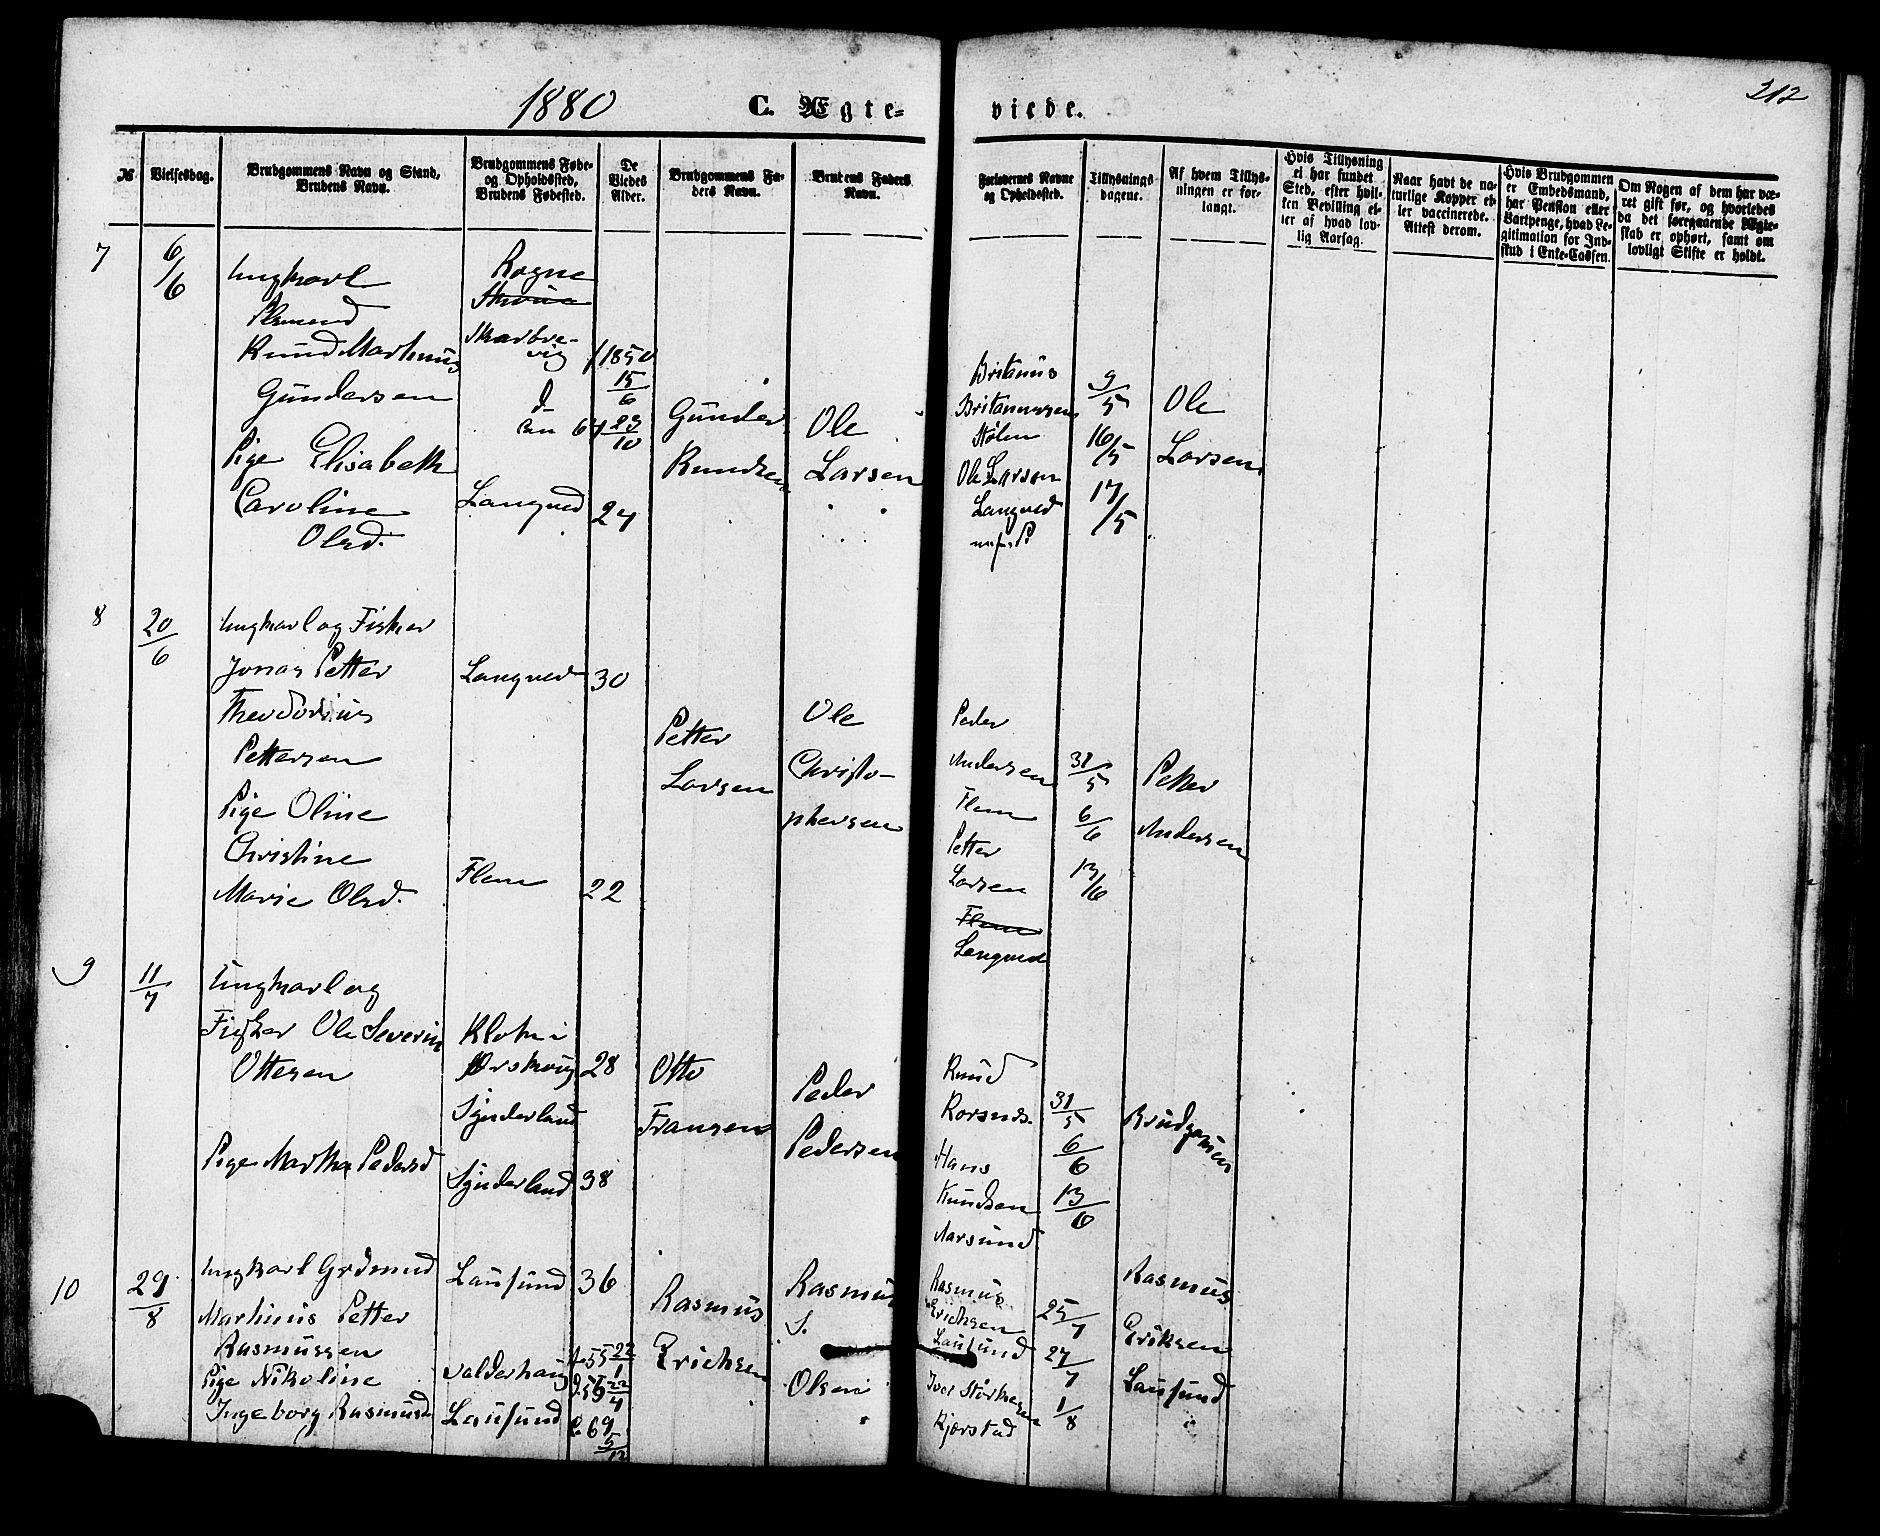 1880
C. Ægte-
viede.
212
№
Vielsesdag.
Brudgommens Navn og Stand,
Brudens Navn.
Brudgommens Føde-
og Opholdssted,
Brudens Fødested.
De
Viedes
Alder.
Brudgommens Fa-
ders Navn.
Brudens Faders
Navn.
Forlovernes Navne
og Opholdssted.
Tillysnings
dagene.
Af hvem Tillys-
ningen er for-
langt.
Hvis Tillysning
ei har fundet
Sted, efter hvil-
ken Bevilling el-
ler af hvad lov-
lig Aarsag.
Naar havt de na-
turlige Kopper el-
ler vaccinerede.
Attest derom.
Hvis Brudgommen
er Embedsmand,
har Pension eller
Vartpenge, hvad Le-
gitimation for Ind-
skud i Enke-Cassen.
Om Nogen af dem har væ-
ret gift før, og hvorledes
da det foregaaende Ægte-
skab er ophørt, samt om
lovligt Skifte er holdt.
7
6/6
Ungkarl
Knud Martinus
Gundersen
Pige Elisabeth
Caroline
Olsd.
Rogne
Skarbre-
vig
Langved
1850
15/6
23/10
24
Gunder
Knudsen
Ole
Larsen
Britanus
Britanussen
Stølen
Ole Larsen
Langved
9/5
16/5
17/5
Ole
Larsen
8
20/6
Ungkarl og Fisker
Jonas Petter
Theodorius
Pettersen
Pige Oline
Christine
Marie Olsd.
Langved
Flem
30
22
Petter
Larsen
Ole
Christo-
phersen
Peder
Andersen
Flem
Petter
Larsen
Flem
Langved
31/5
6/6
13/6
Petter
Andersen
9
11/7
Ungkarl og
Fisker Ole Severin
Ottesen
Pige Martha Pedersd
Klok i
Ørskoug
Synderland
Synderland
28
38
Otto
Fransen
Peder
Pedersen
Knud
Korsnes.
Hans
Knudsen
Aarsund
31/5
6/6
13/6
Brudgomen
10
29/8
Ungkarl Grdmnd
Martinus Petter
Rasmussen
Pige Nikoline
Ingeborg Rasmusd
Lausund
Valderhaug
Lausund
36
22/1
22/4
69
5/12
Rasmus
Erichsen
Rasmus
S.
Olsen
Rasmus
Erichsen
Lausund
Iver Størkersen
Kjerstad
25/7
27/7
1/8
Rasmus
Eriksen
Lausund